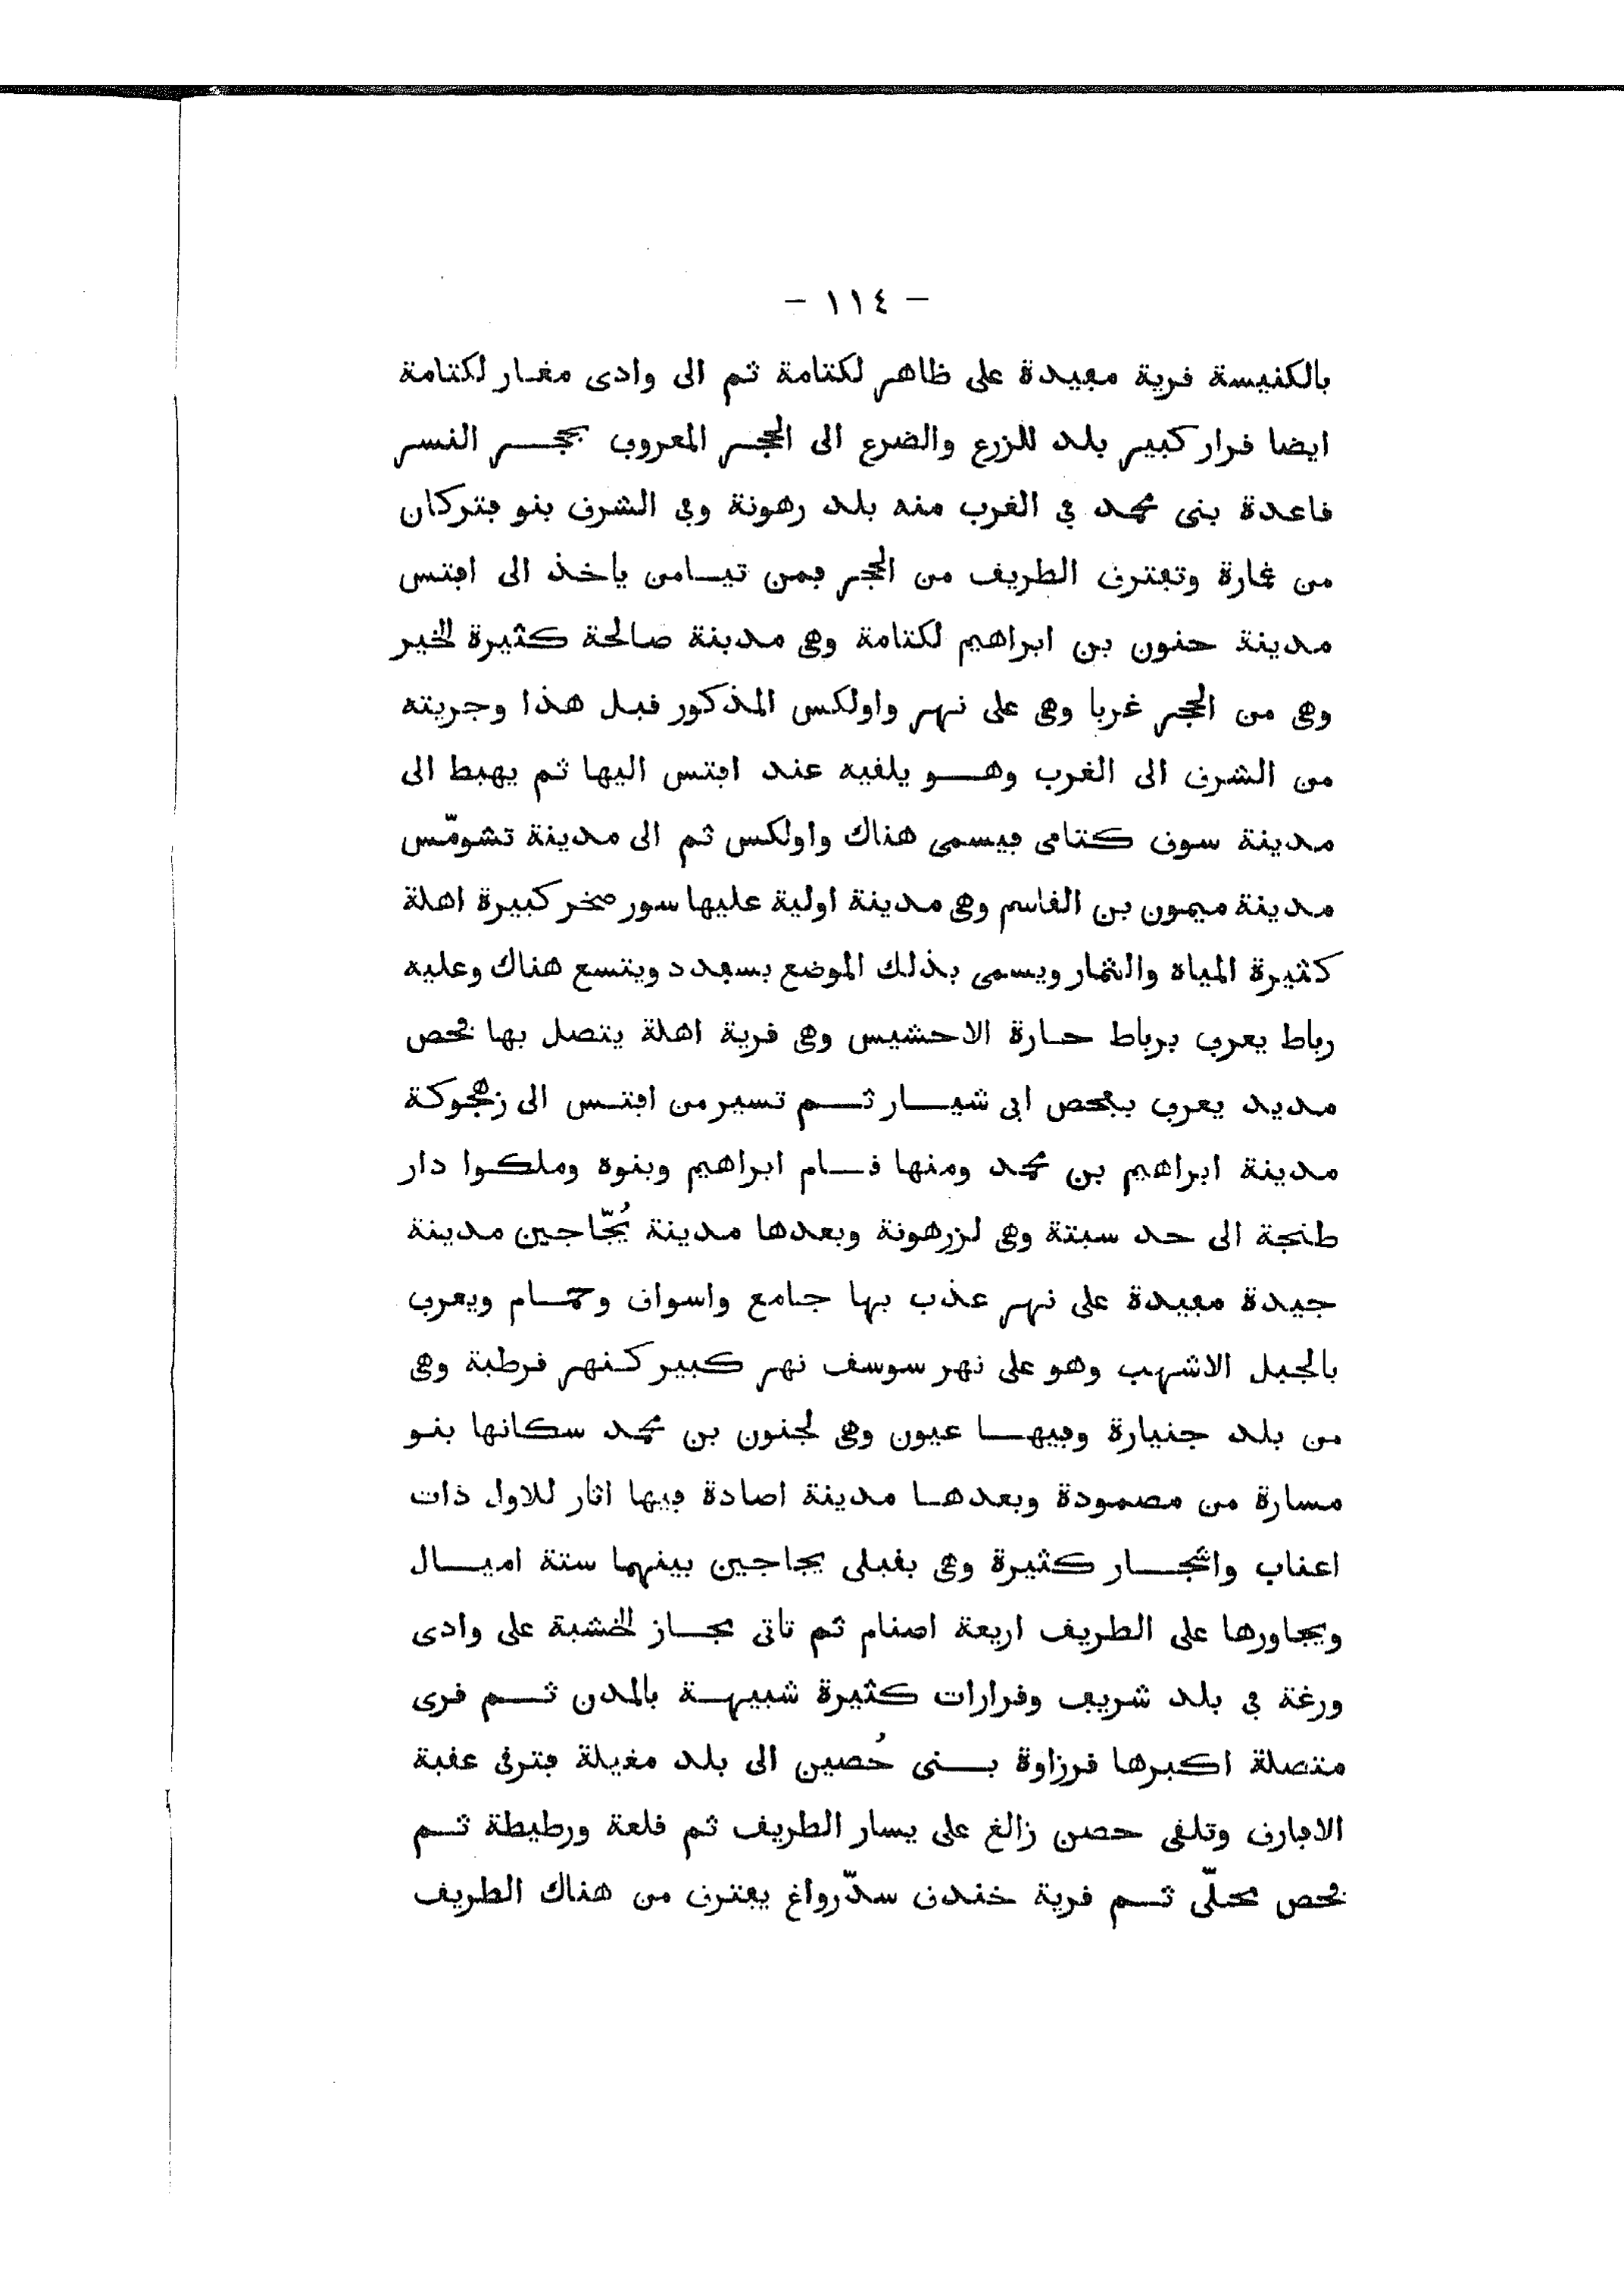 – ١١٤ –
بالكنيسة قرية مفيدة على ظاهر لكتامة ثم الى وادى مغار لكتامة
ايضا قرار كبير بلد للزرع والضرع الى الحجر المعروف بحجر النسر
قاعدة بنى محمد فى الغرب منه بلد رهونة وفى الشرق بنو فتركان
من غمارة وتفترق الطريق من الحجر فمن تيامن ياخذ الى افتس
مدينة حنون بن ابراهيم لكتامة وهى مدينة صالحة كثيرة الخير
وهى من الحجر غربا وهى على نهر واولكس المذكور قبل هذا وجريته
من الشرق الى الغرب وهو يلقيه عند افتس اليها ثم يهبط الى
مدينة سوق كتامى فيسمى هناك واولكس ثم الى مدينة تشومّس
مدينة ميمون بن القاسم وهى مدينة اولية عليها سور صخر كبيرة اهلة
كثيرة المياه والثمار ويسمى بذلك الموضع بسفدد ويتسع هناك وعليه
رباط يعرف برباط حارة الاحشيس وهى قرية اهلة يتصل بها فحص
مديد يعرف بفحص ابى شيار ثم تسير من افتس الى زهجوكة
مدينة ابراهيم بن محمد ومنها قام ابراهيم وبنوه وملكوا دار
طنجة الى حد سبتة وهى لزرهونة وبعدها مدينة يُجّاجين مدينة
جيدة مفيدة على نهر عذب بها جامع واسواق وحمام ويعرف
بالجبل الاشهب وهو على نهر سوسق نهر كبير كنهر قرطبة وهى
من بلد جنيارة وفيها عيون وهى لجنون بن محمد سكانها بنو
مسارة من مصمودة وبعدها مدينة اصادة فيها اثار للاول ذات
اعناب واشجار كثيرة وهى بقبلى يجاجين بينهما ستة اميال
ويجاورها على الطريق اربعة اصنام ثم تاتى مجاز الخشبة على وادى
ورغة فى بلد شريف وقرارات كثيرة شبيهة بالمدن ثم قرى
متصلة اكبرها قرزاوة بنى حُصين الى بلد مغيلة فترقى عقبة
الافارق وتلقى حصن زالغ على يسار الطريق ثم قلعة ورطيطة ثم
فحص محلّى ثم قرية خندق سدّرواغ يفترق من هناك الطريق